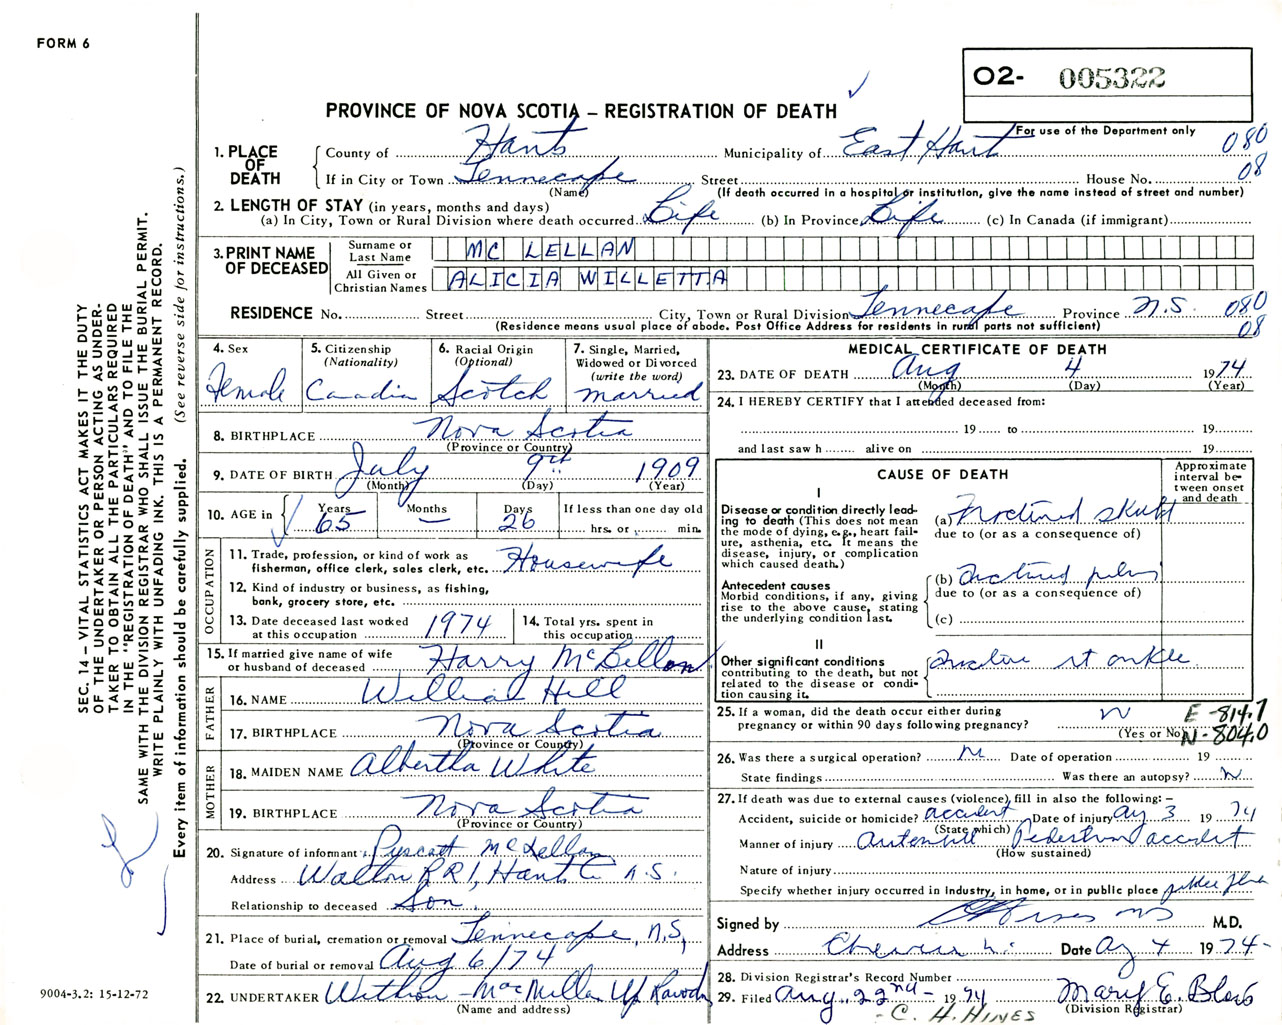 FORM 6
O2- 005322
PROVINCE OF NOVA SCOTIA – REGISTRATION OF DEATH
For use of the Department only
080
08
1. PLACE OF DEATH
County of Hants Municipality of East Hant
If in City or Town Tennecape Street House No.
(Name) (If death occurred in a hospital or institution, give the name instead of street and number)
2. LENGTH OF STAY (in years, months and days)
(a) In City, Town or Rural Division where death occurred Life (b) In Province Life (c) In Canada (if immigrant)
3. PRINT NAME OF DECEASED
Surname or Last Name MC LELLAN
All Given or Christian Names ALICIA WILLETTA
RESIDENCE No. Street City, Town or Rural Division Tennecape Province N.S. 080
08
(Residence means usual place of abode. Post Office Address for residents in rural parts not sufficient)
4. Sex Female
5. Citizenship (Nationality) Canadian
6. Racial Origin (Optional) Scotch
7. Single, Married, Widowed or Divorced (write the word) married
8. BIRTHPLACE Nova Scotia
(Province or Country)
9. DATE OF BIRTH July 9th 1909
(Month) (Day) (Year)
10. AGE in Years 65 Months — Days 26 If less than one day old
hrs. or min.
OCCUPATION
11. Trade, profession, or kind of work as fisherman, office clerk, sales clerk, etc. Housewife
12. Kind of industry or business, as fishing, bank, grocery store, etc.
13. Date deceased last worked at this occupation 1974
14. Total yrs. spent in this occupation
15. If married give name of wife or husband of deceased Harry McLellan
FATHER
16. NAME William Hill
17. BIRTHPLACE Nova Scotia
(Province or Country)
MOTHER
18. MAIDEN NAME Albertha White
19. BIRTHPLACE Nova Scotia
(Province or Country)
20. Signature of informant McLellan
Address Walton RR1, Hants Co N.S.
Relationship to deceased Son
21. Place of burial, cremation or removal Tennecape, N.S,
Date of burial or removal Aug 6/74
22. UNDERTAKER Withrow - MacMillan Up Rawdon
(Name and address)
MEDICAL CERTIFICATE OF DEATH
23. DATE OF DEATH Aug 4 1974
(Month) (Day) (Year)
24. I HEREBY CERTIFY that I attended deceased from:
19 to 19
and last saw h alive on 19
CAUSE OF DEATH
Approximate interval between onset and death
I
Disease or condition directly leading to death (This does not mean the mode of dying, e.g., heart failure, asthenia, etc. It means the disease, injury, or complication which caused death.)
(a) Fractured skull
due to (or as a consequence of)
Antecedent causes
Morbid conditions, if any, giving rise to the above cause, stating the underlying condition last.
(b) fractured pelvis
due to (or as a consequence of)
(c)
II
Other significant conditions contributing to the death, but not related to the disease or condition causing it.
fracture rt ankle
25. If a woman, did the death occur either during pregnancy or within 90 days following pregnancy?
(Yes or No)
E -814.7
N-804.0
26. Was there a surgical operation? Date of operation 19
State findings Was there an autopsy?
27. If death was due to external causes (violence) fill in also the following: –
Accident, suicide or homicide? accident Date of injury Aug 3 1974
(State which)
Manner of injury Automobile Pedestrian accident
(How sustained)
Nature of injury
Specify whether injury occurred in Industry, in home, or in public place public place
Signed by M.D.
Address Date Aug 4 1974
28. Division Registrar's Record Number
29. Filed Aug. 22nd - 1974 Mary E.
(Division Registrar)
- C. H. HINES
SEC. 14 – VITAL STATISTICS ACT MAKES IT THE DUTY
OF THE UNDERTAKER OR PERSON ACTING AS UNDER-
TAKER TO OBTAIN ALL THE PARTICULARS REQUIRED
IN THE "REGISTRATION OF DEATH" AND TO FILE THE
SAME WITH THE DIVISION REGISTRAR WHO SHALL ISSUE THE BURIAL PERMIT.
WRITE PLAINLY WITH UNFADING INK. THIS IS A PERMANENT RECORD.
Every item of information should be carefully supplied. (See reverse side for instructions.)
9004-3.2: 15-12-72